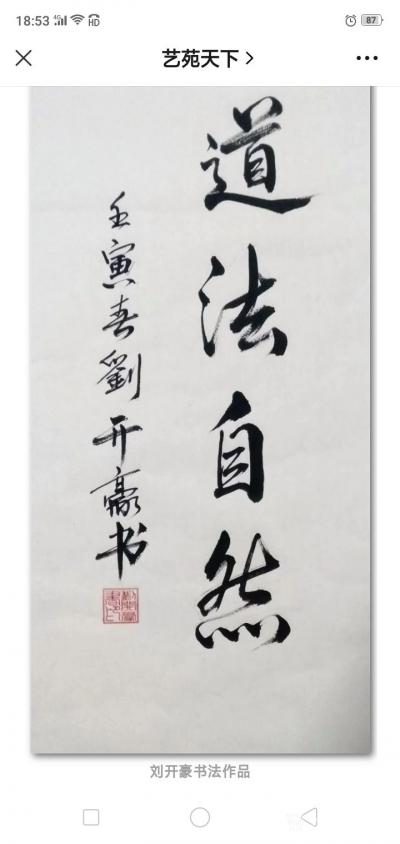 18:53 4G HD 87
艺苑天下
道法自然
壬寅春劉开豪书
刘开豪书法作品